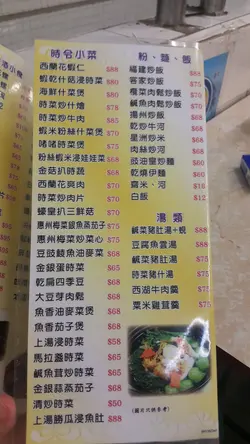 時令小菜
西蘭花蝦仁 $88
蝦乾什菇浸時菜 $80
海鮮什菜煲 $80
時菜炒什燴 $78
時菜炒牛肉 $85
蝦米粉絲什菜煲 $70
啫啫時菜煲 $75
粉絲蝦米浸娃娃菜 $68
金菇扒時蔬 $68
西蘭花爽肉 $70
時菜炒肉片 $70
蠔皇扒三鮮菇 $70
惠州梅菜蒸茄子 $75
惠州梅菜炒菜心 $75
豆豉鯪魚油麥菜 $68
金銀蛋時菜 $68
乾扁四季豆 $68
大豆芽肉鬆 $68
魚香油麥菜煲 $68
魚香茄子煲 $68
上湯浸時菜 $58
馬拉盞時菜 $65
鹹魚茸炒時菜 $65
金銀蒜蒸茄子 $68
清炒時菜 $50
上湯勝瓜浸魚肚 $88
粉、麵、飯
福建炒飯 $88
客家炒飯 $75
欖菜肉鬆炒飯 $75
鹹魚肉鬆炒飯 $70
揚州炒飯 $68
乾炒牛河 $68
星洲炒米 $68
肉絲炒河 $68
豉油皇炒麵 $60
乾燒伊麵 $60
齋米、河 $16
白飯 $12
湯類
鹹菜豬肚湯+蜆 $88
豆腐魚雲湯 $88
鹹菜豬肚湯 $75
時菜豬什湯 $75
西湖牛肉羹 $75
粟米雞茸羹 $75
(圖片只供參考)